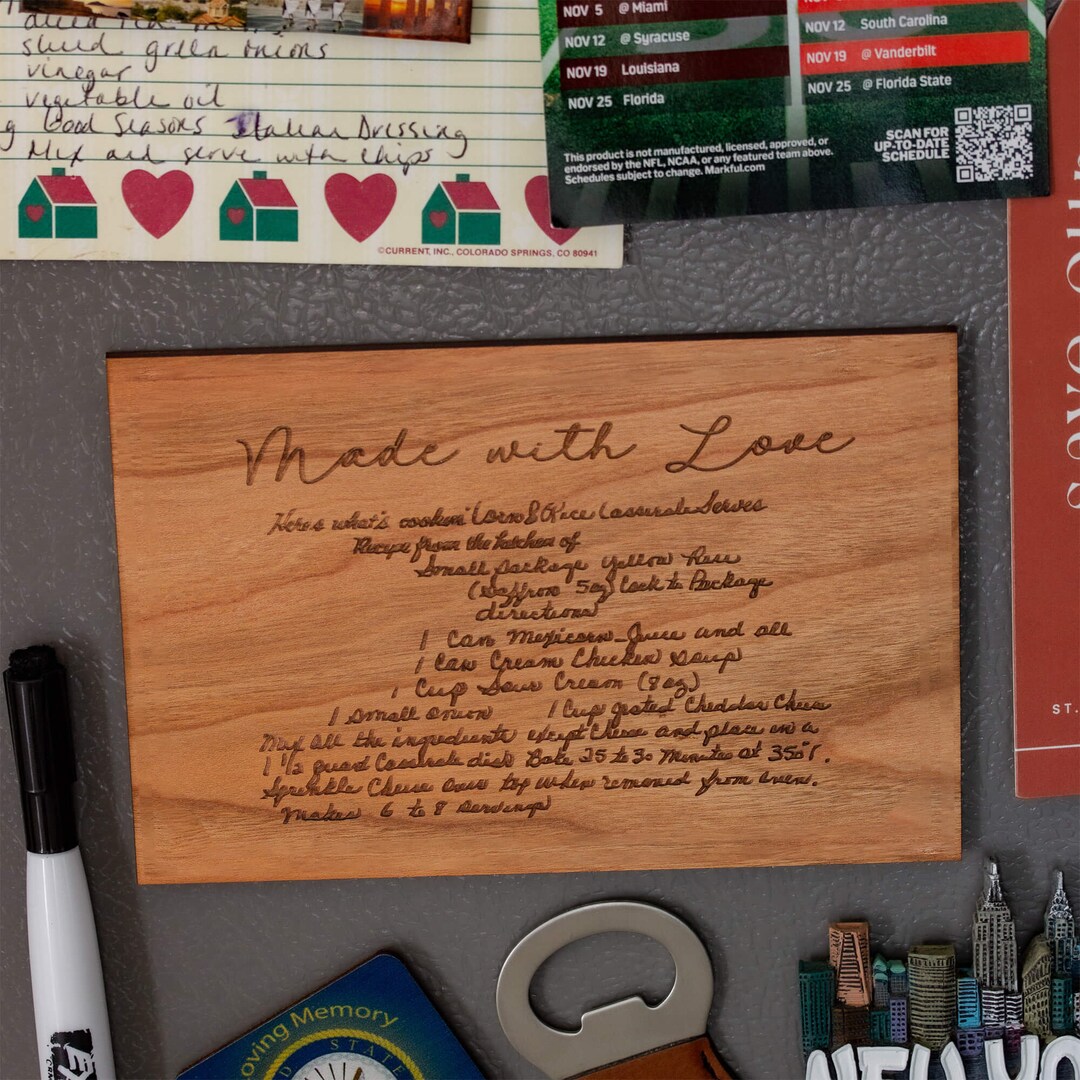 sliced green onions
vinegar
vegetable oil
g Good Seasons Italian Dressing
Mix and serve with chips
©CURRENT, INC., COLORADO SPRINGS, CO 80941
NOV 5 @ Miami
NOV 12 @ Syracuse
NOV 19 Louisiana
NOV 25 Florida
NOV 12 South Carolina
NOV 19 @ Vanderbilt
NOV 25 @ Florida State
This product is not manufactured, licensed, approved, or
endorsed by the NFL, NCAA, or any featured team above.
Schedules subject to change. Markful.com
SCAN FOR
UP-TO-DATE
SCHEDULE
Made with Love
Here's what's cookin' Corn & Rice Casserole Serves
Recipe from the kitchen of
Small package Yellow Rice
(Saffron 5oz) Cook to Package
directions
1 Can Mexicorn - Juice and all
1 Can Cream Chicken Soup
1 Cup Sour Cream (8 oz)
1 small onion 1 Cup grated Cheddar Cheese
Mix all the ingredients except Cheese and place in a
1 1/2 quart Casserole dish Bake 25 to 30 Minutes at 350°.
Sprinkle Cheese over top when removed from oven.
Makes 6 to 8 servings
ST.
oving Memory
STATE
NEW YO